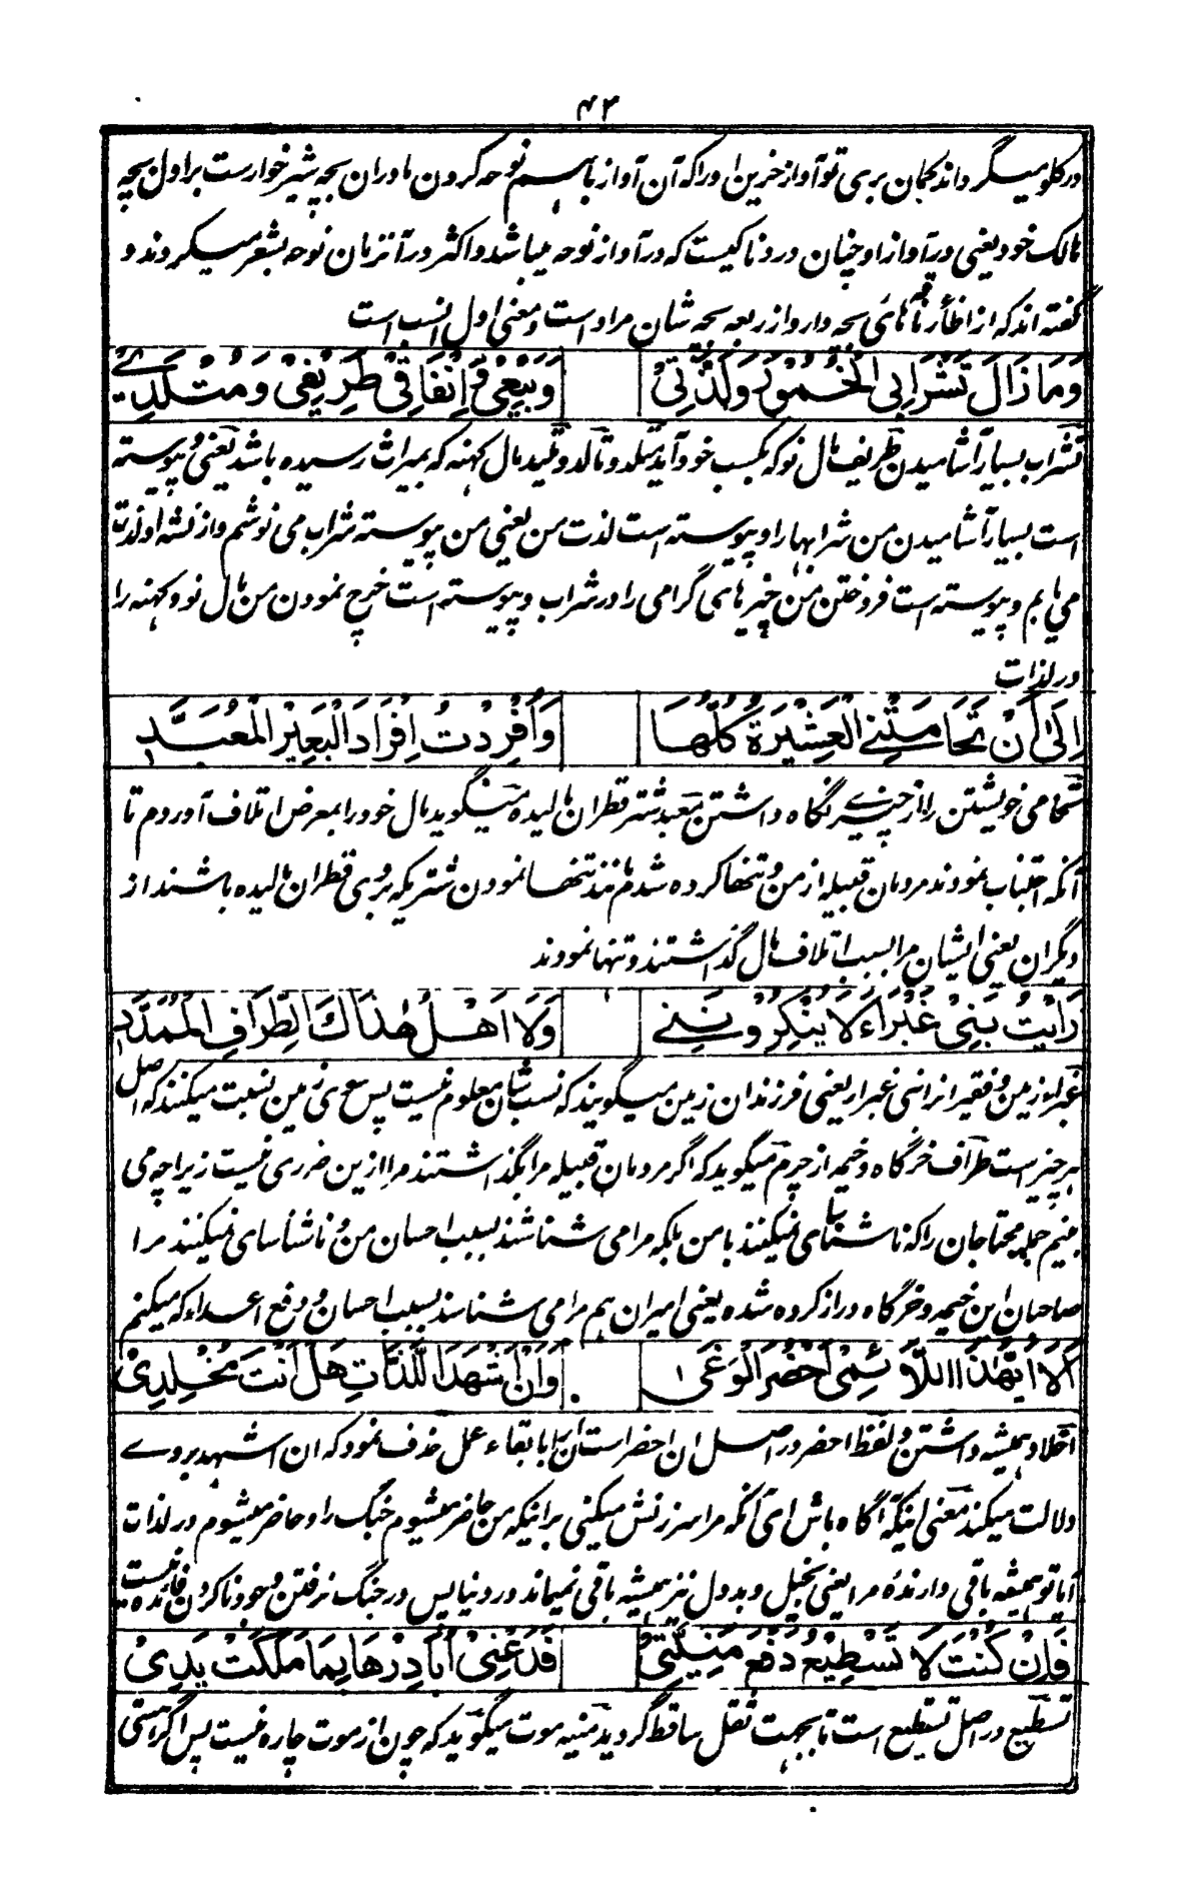 ۴۳
درگلو میگرداند بگمان بری تو آواز حزین او را که آن آواز باهم نوحه کردن مادران بچه شیر خوارست بر اول بچه
هالک خود یعنی در آواز او چنان دردناکیست که در آواز نوحه میباشد و اکثر در آنزمان نوحه بشعر میکردند و
گفته اند که از اظآر ناقه های بچه دار و از ربعه بچه شان مراد است و معنی اول انسب است
وَمَا زَالَ تَشْرَابِی الْخُمُوْرَ وَلَذَّتِیْ
وَبَیْعِیْ وَاِنْفَاقِیْ طَرِیْفِیْ وَمُتْلَدِےْ
تشراب بسیار آشامیدن طریف مال نو که بکسب خود آید متلد و تالد و تلید مال کهنه که بمیراث رسیده باشد یعنی و پیوسته
است بسیار آشامیدن من شرابها را و پیوسته است لذت من یعنی من پیوسته شراب می نوشم و از نشه او لذت
می یابم و پیوسته است فروختن من چیزهای گرامی را در شراب و پیوسته است خرچ نمودن من مال نو و کهنه را
در لذات
اِلٰی اَنْ تَحَامَتْنِے الْعَشِیْرَةُ کُلُّهَا
وَاُفْرِدْتُ اِفْرَادَ الْبَعِیْرِ الْمُعَبَّدِ
تحامی خویشتن را از چیزے نگاه داشتن معبد شتر قطران مالیده میگوید مال خود را بمعرض اتلاف آوردم تا
آنکه اجتناب نمودند مردمان قبیله از من و تنها کرده شدم مانند تنها نمودن شتریکه بروی قطران مالیده باشند از
دیگران یعنی ایشان مرا بسبب اتلاف مال گذاشتند و تنها نمودند
رَاَیْتُ بَنِیْ غَبْرَاءَ لَا یُنْکِرُوْنَنِے
وَلَا اَهْلُ هٰذَاكَ الطِّرَافِ الْمُمَدَّدِ
غبراء زمین و فقیر از ابنی غبرا یعنی فرزندان زمین میگویند که نسب شان معلوم نیست پس سعی بزمین نسبت میکنند که اصل
هر چیز است طراف خرگاه و خیمه از چرم میگوید که اگر مردمان قبیله مرا بگذاشتند مرا ازین ضرری نیست زیراچه می
بینم جمله محتاجان را که ناشناسای نمیکنند با من بلکه مرا می شناشند بسبب احسان من و ناشناسای نمیکنند مرا
صاحبان این خیمه و خرگاه دراز کرده شده یعنی امیران هم مرا می شناسند بسبب احسان و دفع اعداء که میکنم
اَلَا اَیُّهٰذَا اللَّا ئِمِیْ اَحْضُرَ الْوَغٰی
وَاَنْ اَشْهَدَ اللَّذَّاتِ هَلْ اَنْتَ مُخْلِدِیْ
اخلاد همیشه داشتن و لفظ احضر در اصل ان احضر است ان را با بقاء عمل حذف نمود که ان اشهد بروے
دلالت میکند معنی اینکه آگاه باش ای آنکه مرا سرزنش میکنی بر اینکه من حاضر میشوم جنگ را و حاضر میشوم در لذات
آیا تو همیشه باقی دارندهٔ مرا یعنی بخیل و بددل نیز همیشه باقی نمیماند در دنیا پس در جنگ نرفتن و جود ناکردن فائده نیست
فَاِنْ کُنْتَ لَا تَسْطِیْعُ دَفْعَ مَنِیَّتِیْ
فَدَعْنِیْ اُبَادِرْهَا بِمَا مَلَکَتْ یَدِیْ
تسطیع در اصل تستطیع است تا بجهت ثقل ساقط گردید منیه موت میگوید که چون از موت چاره نیست پس اگر هستی